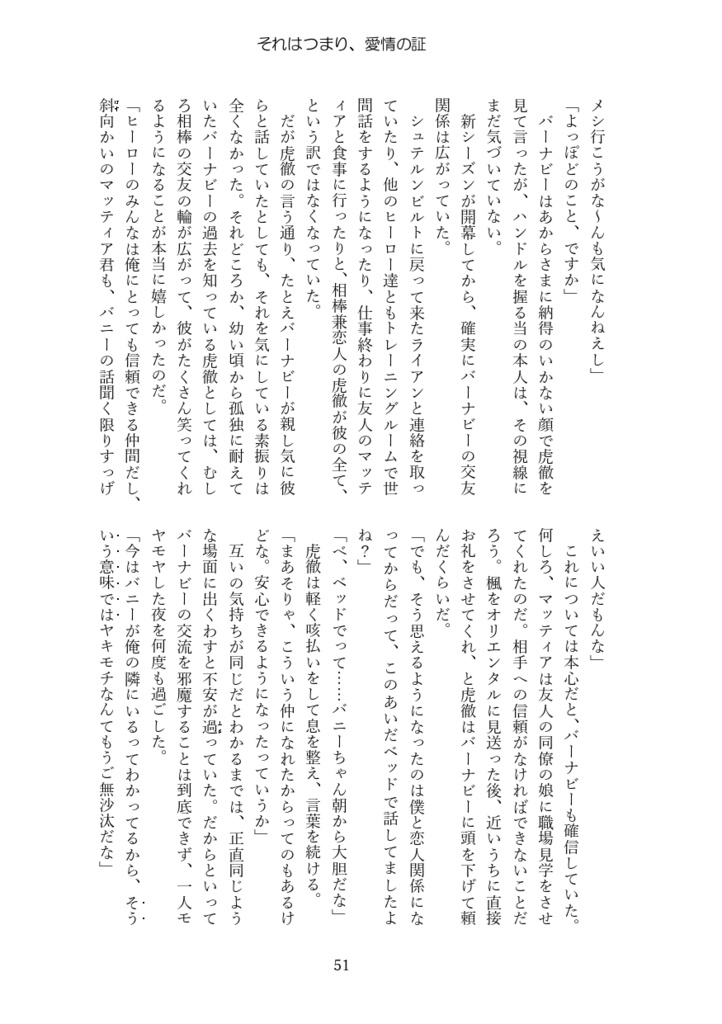 それはつまり、愛情の証
メシ行こうがな〜んも気になんねえし」
「よっぽどのこと、ですか」
バーナビーはあからさまに納得のいかない顔で虎徹を
見て言ったが、ハンドルを握る当の本人は、その視線に
まだ気づいていない。
新シーズンが開幕してから、確実にバーナビーの交友
関係は広がっていた。
シュテルンビルトに戻って来たライアンと連絡を取っ
ていたり、他のヒーロー達ともトレーニングルームで世
間話をするようになったり、仕事終わりに友人のマッテ
ィアと食事に行ったりと、相棒兼恋人の虎徹が彼の全て、
という訳ではなくなっていた。
だが虎徹の言う通り、たとえバーナビーが親し気に彼
らと話していたとしても、それを気にしている素振りは
全くなかった。それどころか、幼い頃から孤独に耐えて
いたバーナビーの過去を知っている虎徹としては、むし
ろ相棒の交友の輪が広がって、彼がたくさん笑ってくれ
るようになることが本当に嬉しかったのだ。
「ヒーローのみんなは俺にとっても信頼できる仲間だし、
斜向かいのマッティア君も、バニーの話聞く限りすっげ
えいい人だもんな」
これについては本心だと、バーナビーも確信していた。
何しろ、マッティアは友人の同僚の娘に職場見学をさせ
てくれたのだ。相手への信頼がなければできないことだ
ろう。楓をオリエンタルに見送った後、近いうちに直接
お礼をさせてくれ、と虎徹はバーナビーに頭を下げて頼
んだくらいだ。
「でも、そう思えるようになったのは僕と恋人関係にな
ってからだって、このあいだベッドで話してましたよ
ね？」
「べ、ベッドでって……バニーちゃん朝から大胆だな」
虎徹は軽く咳払いをして息を整え、言葉を続ける。
「まあそりゃ、こういう仲になれたからってのもあるけ
どな。安心できるようになったっていうか」
互いの気持ちが同じだとわかるまでは、正直同じよう
な場面に出くわすと不安が過っていた。だからといって
バーナビーの交流を邪魔することは到底できず、一人モ
ヤモヤした夜を何度も過ごした。
「今はバニーが俺の隣にいるってわかってるから、そう
いう意味ではヤキモチなんてもうご無沙汰だな」
51